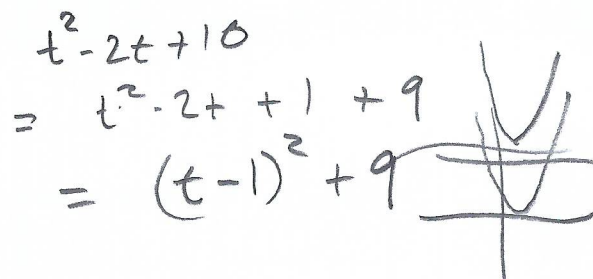 t² - 2t + 10
= t² - 2t + 1 + 9
= (t - 1)² + 9